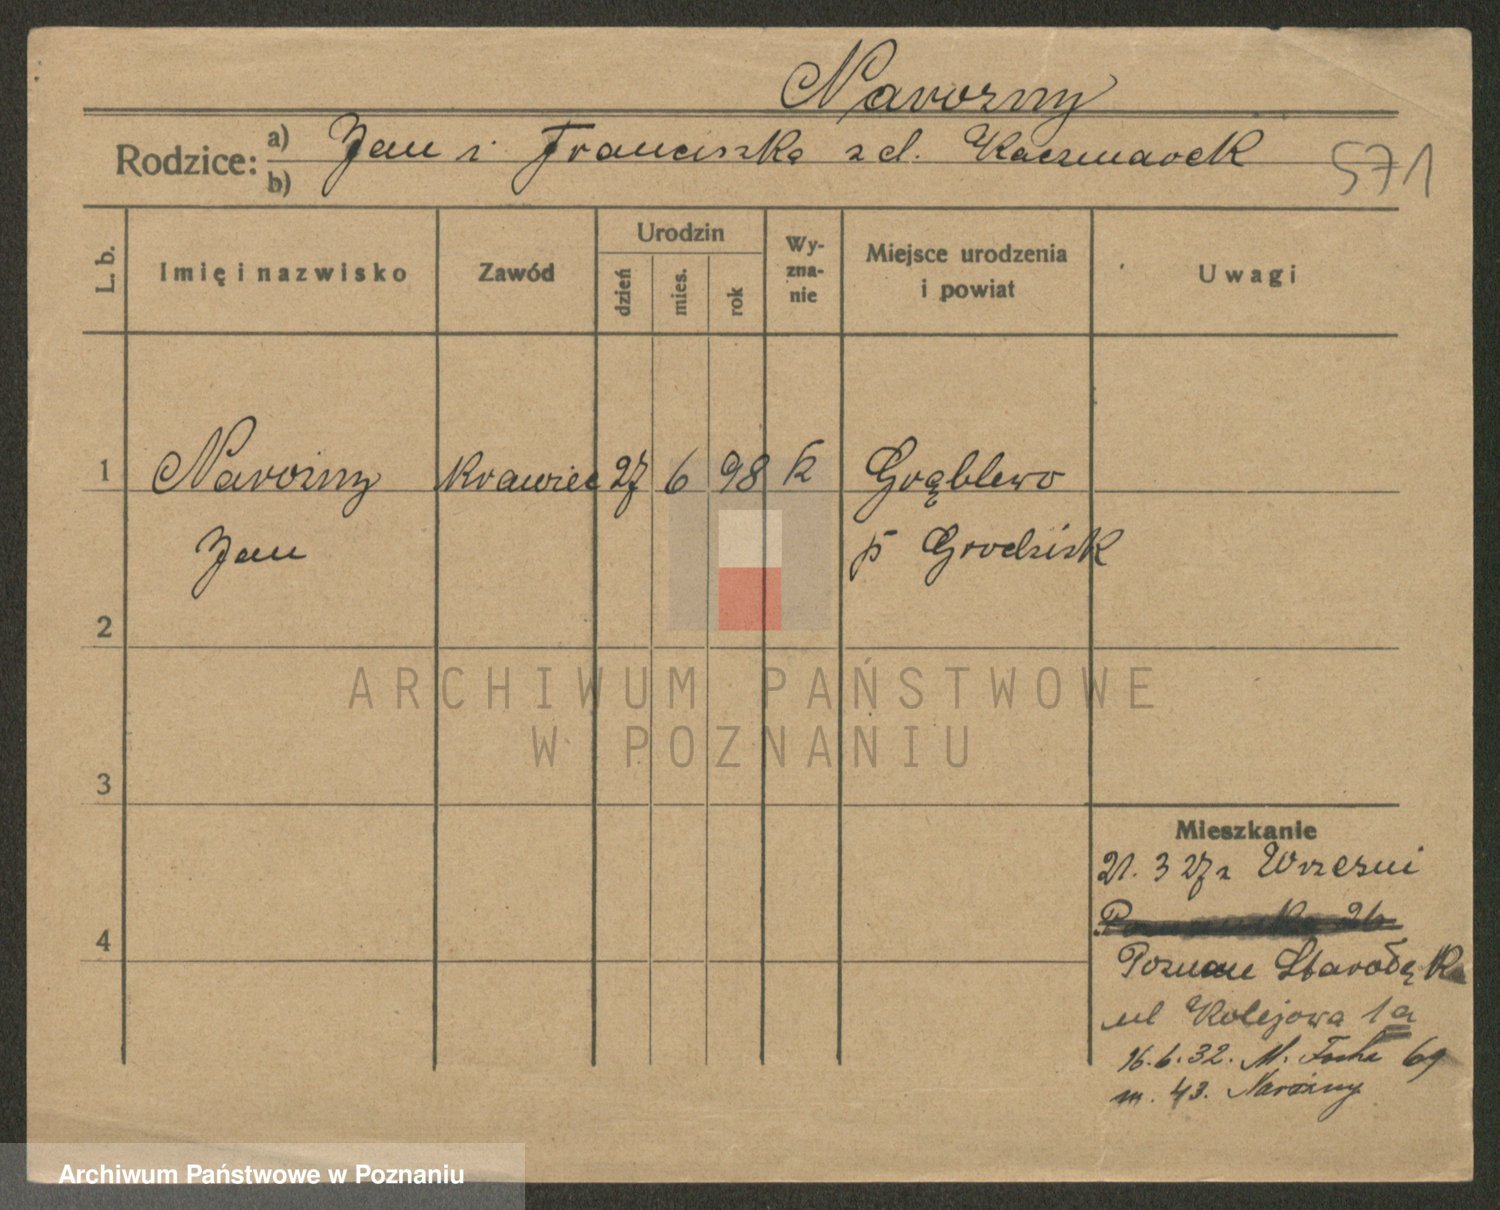 Narozny
Rodzice: a) b) Jan i Franciszka z d. Kaczmarek 571
L. b. Imię i nazwisko Zawód Urodzin dzień mies. rok Wy-zna-nie Miejsce urodzenia i powiat Uwagi
1 Narożny Krawiec 27 6 98 k Grąblewo
Jan p Grodzisk
2
ARCHIWUM PAŃSTWOWE
W POZNANIU
3
Mieszkanie
21. 3 27 z Wrześni
26
4
Poznań Starołęka
ul Kolejowa 1a
16.6.32. M. Focha 69
m. 43. Narożny
Archiwum Państwowe w Poznaniu